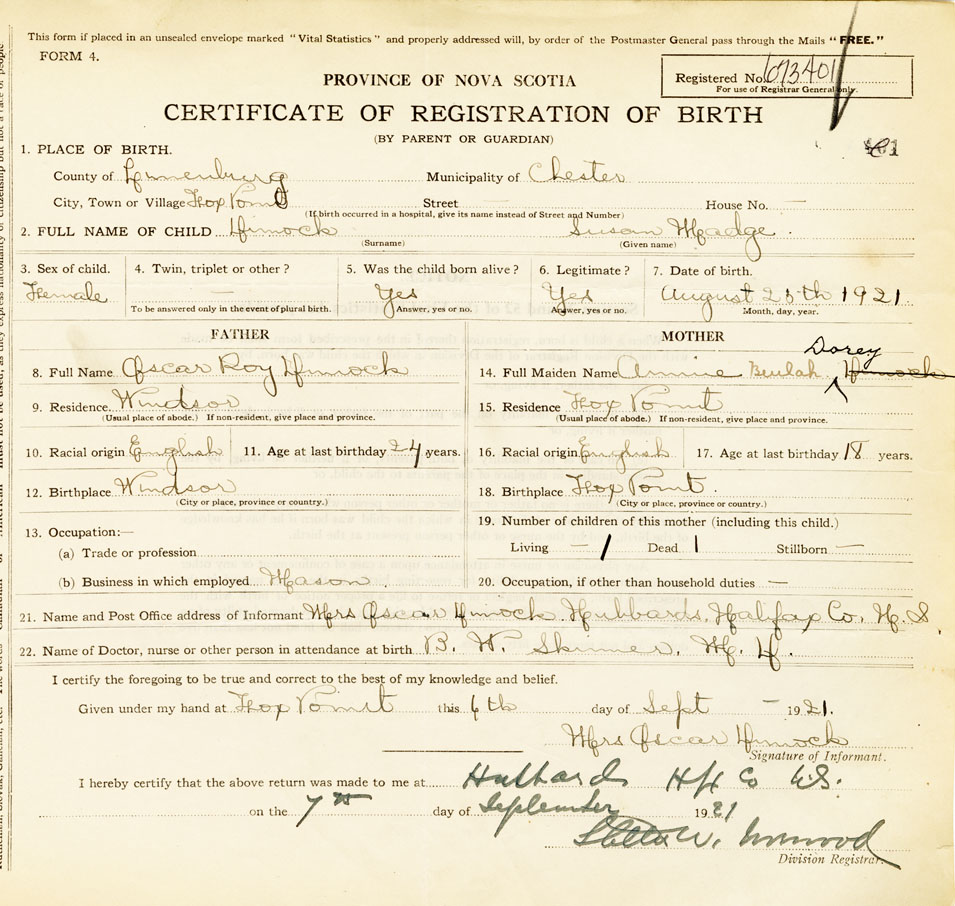 This form if placed in an unsealed envelope marked "Vital Statistics" and properly addressed will, by order of the Postmaster General pass through the Mails "FREE."
FORM 4.
PROVINCE OF NOVA SCOTIA
Registered No. 673401
For use of Registrar General only.
CERTIFICATE OF REGISTRATION OF BIRTH
(BY PARENT OR GUARDIAN)
1. PLACE OF BIRTH.
County of Lunenburg Municipality of Chester
City, Town or Village Fox Point Street — House No. —
(If birth occurred in a hospital, give its name instead of Street and Number)
2. FULL NAME OF CHILD Susan Madge
(Surname) (Given name)
3. Sex of child. 4. Twin, triplet or other? 5. Was the child born alive? 6. Legitimate? 7. Date of birth.
Female — Yes Yes August 25th 1921
To be answered only in the event of plural birth. Answer, yes or no. Answer, yes or no. Month, day, year.
FATHER MOTHER
Dorey
8. Full Name Oscar Roy 14. Full Maiden Name Annie Beulah
9. Residence Windsor 15. Residence Fox Point
(Usual place of abode.) If non-resident, give place and province. (Usual place of abode.) If non-resident, give place and province.
10. Racial origin English 11. Age at last birthday 24 years. 16. Racial origin English 17. Age at last birthday 18 years.
12. Birthplace Windsor 18. Birthplace Fox Point
(City or place, province or country.) (City or place, province or country.)
13. Occupation:— 19. Number of children of this mother (including this child.)
(a) Trade or profession Living 1 Dead 1 Stillborn —
(b) Business in which employed Mason 20. Occupation, if other than household duties —
21. Name and Post Office address of Informant Mrs Oscar Hubbards, Halifax Co. N. S.
22. Name of Doctor, nurse or other person in attendance at birth B. W. Skinner, M. D.
I certify the foregoing to be true and correct to the best of my knowledge and belief.
Given under my hand at Fox Point this 6th day of Sept — 1921.
Mrs Oscar
Signature of Informant.
I hereby certify that the above return was made to me at Hubbards Hfx Co N.S.
on the 7th day of September 1921
Norwood
Division Registrar.